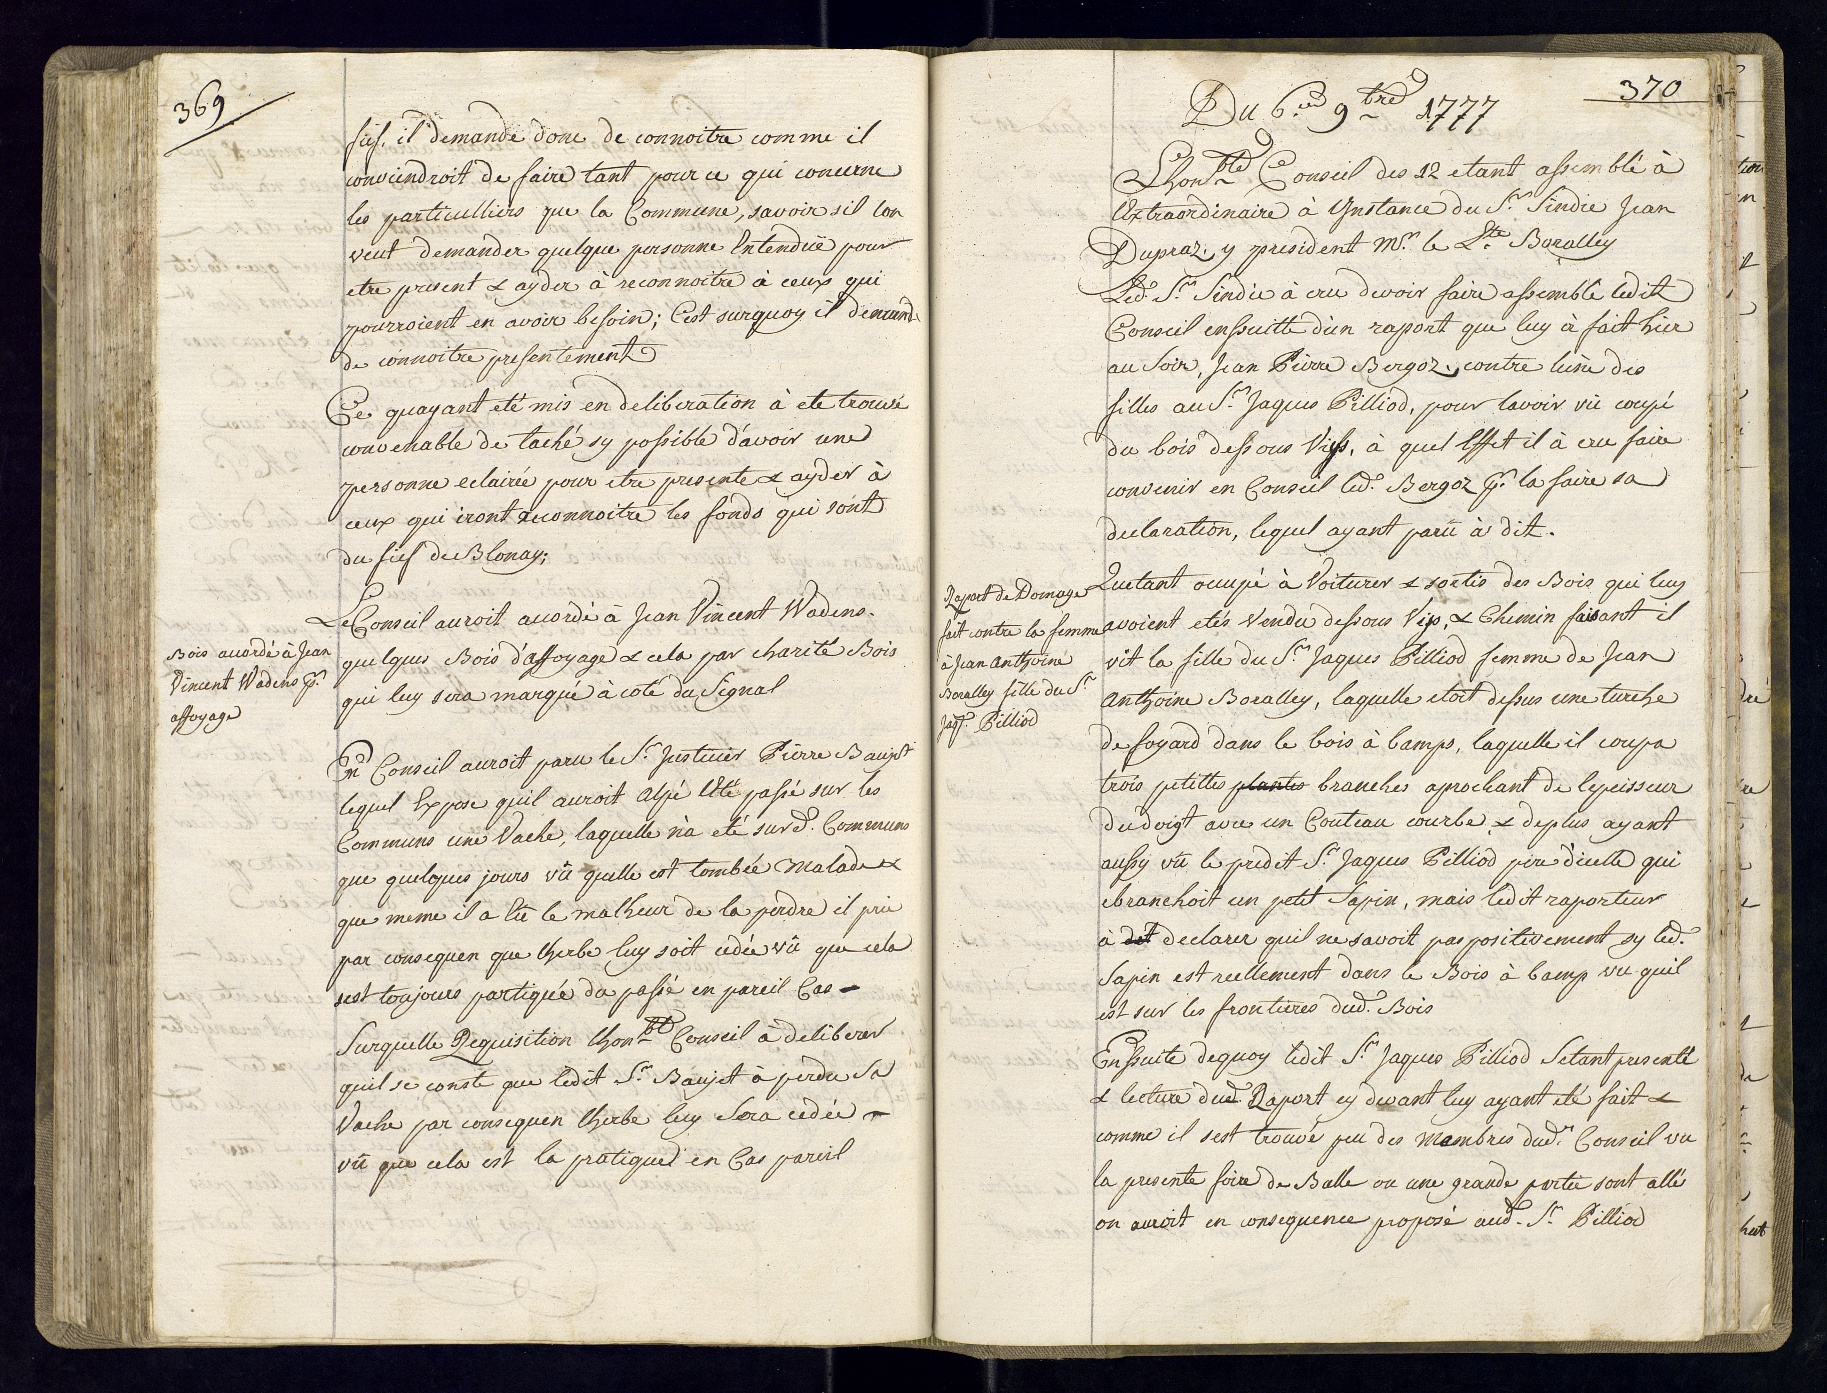 369
fief. il demande donc de connoitre comme il
conviendroit de faire tant pour ce qui concerne
les particulliers que la Commune, savoir sil lon
veut demander quelque personne Entenduë pour
etre present & ayder à reconnoitre à ceux qui
pourroient en avoir besoin; C'est surquoy il demande
de connoitre presentement
Ce quayant eté mis en deliberation à ete trouvé
convenable de taché sy possible d'avoir une
personne eclairée pour etre presente & ayder à
ceux qui iront reconnoitre les fonds qui sont
du fief de Blonay;
Le Conseil auroit acordé à Jean Vincent Wadens
quelques Bois d'affoyage & cela par charité Bois
qui luy sera marqué à coté du Signal
Bois acordé à Jean
Vincent Wadens pr.
affoyage
En Conseil auroit paru le Sr. Justicier Pierre Baujet
lequel Expose quil auroit Alpé lEté passé sur les
Communs une Vache, laquelle n'a eté surd. Communs
que quelques jours vû quelle est tombée malade &
que meme il a Eü le malheur de la perdre il prie
par consequen que lherbe luy soit cedée vû que cela
sest toujours partiquée du passé en pareil Cas -
Surquelle Requisition lhonble Conseil à deliberer
quil se conste que ledit Sr. Baujet à perdu Sa
Vache par consequen lherbe luy Sera cedée -
vû que cela est la pratique en Cas pareil
370
Du 6.e 9bre 1777
Lhonble Conseil des 12 etant assemblé à
lExtraordinaire à Ynstance du Sr. Sindic Jean
Dupraz. y president Mr. le Lte. Boralley
Led. Sr. Sindic à cru devoir faire assemblé ledit
Conseil ensuitte d'un raport que luy à fait hier
au Soir, Jean Pierre Bergoz, contre lune des
filles au Sr. Jaques Pilliod, pour lavoir vü coupé
du bois dessous Viss, à quel Effet il à cru faire
convenir en Conseil led. Bergoz pr. la faire sa
declaration, lequel ayant parü à dit.
Quetant ocupé à Voiturer & sortis des Bois qui luy
avoient etés vendu dessous Viss, & Chemin faisant il
vit la fille du Sr. Jaques Pilliod femme de Jean
Anthoine Boralley, laquelle etoit dessus une turche
de foyard dans le bois à bamps, laquelle il coupa
trois petittes plantes branches aprochant de lepeisseur
du doigt avec un Couteau courbe, & deplus ayant
aussy vü le predit Sr. Jaques Pilliod pere d'icelle qui
ebranchoit un petit Sapin, mais ledit raporteur
à det declarer quil ne savoit pas positivement sy led.
Sapin est reellement dans le Bois à bamp vu quil
est sur les frontieres dud. Bois
Rapport de Domage
fait contre la femme
à Jean Anthoine
Boralley fille du Sr.
Jaqs. Pilliod
Ensuite dequoy ledit Sr. Jaques Pilliod Setant presenté
& lecture dud. Raport cy devant luy ayant eté fait &
comme il sest trouvé peu des Membres dud. Conseil vu
la presente foire de Bulle ou une grande partie sont allé
on auroit en consequence proposé aud. Sr. Pilliod